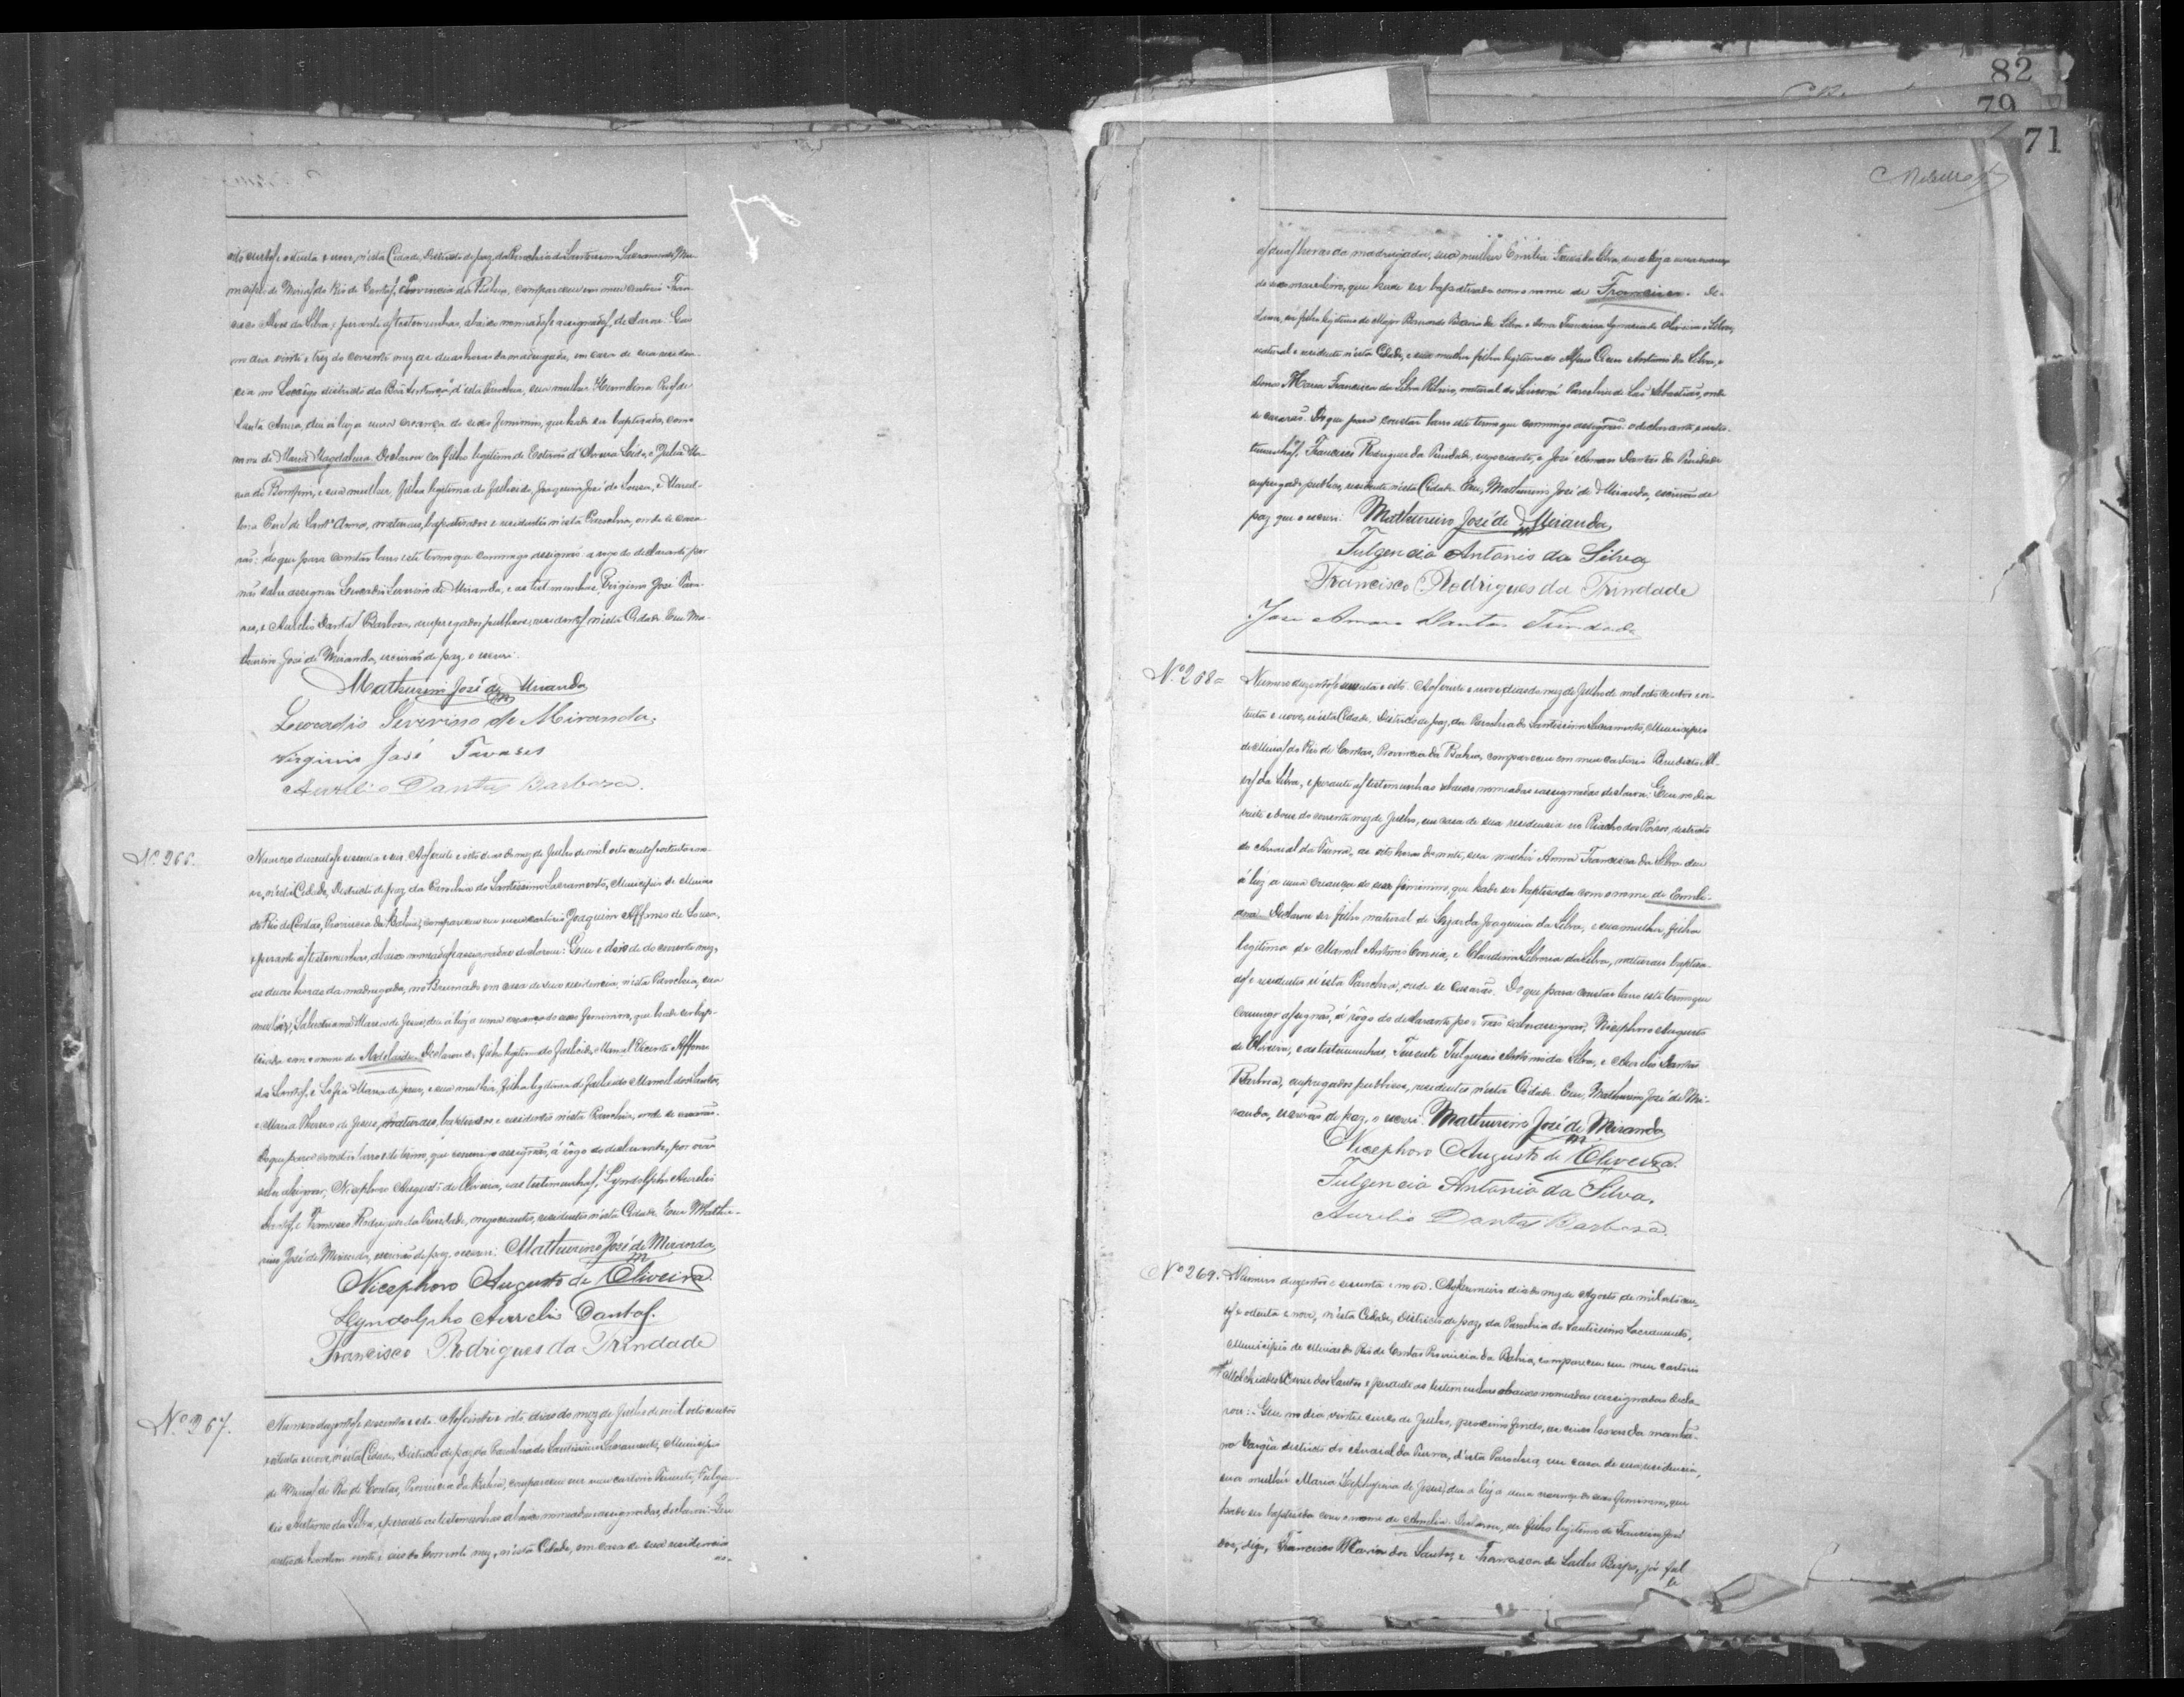 82
79
71
oito centos e oitenta e nove, n'esta Cidade, Districto de paz da Parochia do Santissimo Sacramento, Mu-
nicipio de Minas do Rio de Contas, Provincia da Bahia, compareceu em meu cartorio Fran-
cisco da Silva, e perante as testemunhas abaixo nomeadas e assignadas, declarou: Que
no dia vinte e trez do corrente mez as duas horas da madrugada, em casa de sua residen-
cia no districto da d'esta Parochia, sua mulher
Santa Anna, deu á luz a uma creança do sexo feminino, que hade ser baptisada, com o
nome de Maria Magdalena. Declarou ser filho legitimo de Estevão d'Oliveira e Julia Ma-
ria do Bomfim, e sua mulher, filha legitima do fallecido Joaquim José de Souza, e Marcel-
lina de Sant'Anna, naturaes, baptisados e residentes n'esta Parochia, onde se casa-
rão: do que para constar lavro este termo que commigo assignão a rogo do declarante por
não saber assignar Leocadio Severino de Miranda, e as testemunhas, Virginio José Tava-
res, e Aurelio Dantas Barbosa, empregados publicos, residentes n'esta Cidade. Eu Ma-
thurino José de Miranda, escrivão de paz, o escrevi.
Mathurino José de Miranda
Leocadio Severino de Miranda.
Virginio José Tavares
Aurelio Dantas Barbosa.
Nº 266.
Numero duzentos e sessenta e seis. Aos vinte e oito dias do mez de Julho de mil oito centos e oitenta e no-
ve, n'esta Cidade, Districto de paz da Parochia do Santissimo Sacramento, Municipio de Minas
do Rio de Contas, Provincia da Bahia, compareceu em meu cartorio Joaquim Affonso de Souza,
e perante as testemunhas, abaixo nomeadas e assignadas declarou: Que e doze do corrente mez,
as duas horas da madrugada, no Brumado em casa de sua residencia, n'esta Parochia, sua
mulher, Maria de Jesus, deu á luz a uma creança do sexo feminino, que hade ser bap-
tisada com o nome de Adelaide. Declarou ser filho legitimo do fallecido Manoel Vicente Affonso
dos Santos, e Sofia Maria de Jesus, e sua mulher, filha legitima do fallecido Manoel dos Santos,
e Maria Thereza de Jesus, naturaes, baptisados e residentes n'esta Parochia, onde se casarão.
Do que para constar lavro este termo, que commigo assignão, á rôgo do declarante, por não
saber assignar, Nicephoro Augusto de Oliveira, e as testemunhas, Lyndolpho Aurelio
Dantas, e Francisco Rodrigues da Trindade, negociantes, residentes n'esta Cidade. Eu Mathu-
rino José de Miranda, escrivão de paz, o escrevi. Mathurino José de Miranda
Nicephoro Augusto de Oliveira.
Lyndolpho Aurelio Dantas.
Francisco Rodrigues da Trindade
Nº 267.
Numero duzentos e sessenta e sete. Aos vinte e oito dias do mez de Julho de mil oito centos
e oitenta e nove, n'esta Cidade, Districto de paz da Parochia do Santissimo Sacramento, Municipio
de Minas do Rio de Contas, Provincia da Bahia, compareceu em meu cartorio Tenente, Fulgen-
cio Antonio da Silva, e perante as testemunhas abaixo nomeadas e assignadas, declarou: Que
antes de hontem vinte e seis do corrente mez, n'esta Cidade, em casa de sua residencia
as-
as duas horas da madrugada, sua mulher Emilia da Silva, deu á luz a uma creança
do sexo masculino, que hade ser baptisado com o nome de Francisco. De-
clarou, ser filho legitimo do Major Bernardo da Silva e Dona Francisca de Oliveira e Silva,
natural e residente n'esta Cidade, e sua mulher filha legitima do Alferes Antonio da Silva, e
Dona Maria Francisca da Silva Ribeiro, natural do Parochia de São Sebastião, onde
se casarão. Do que para constar lavro este termo que commigo assignão o declarante, e as tes-
temunhas, Francisco Rodrigues da Trindade, negociante, e José Amaro Dantas da Trindade
empregado publico, residentes n'esta Cidade. Eu, Mathurino José de Miranda, escrivão de
paz que o escrevi. Mathurino José de Miranda
Fulgencio Antonio da Silva
Francisco Rodrigues da Trindade
José Amaro Dantas Trindade
Nº 268=
Numero duzentos e sessenta e oito. Aos vinte e nove dias do mez de Julho de mil oito centos e oi-
tenta e nove, n'esta Cidade, Districto de paz, da Parochia do Santissimo Sacramento, Municipio
de Minas do Rio de Contas, Provincia da Bahia, compareceu em meu cartorio Benedicto Al-
ves da Silva, e perante as testemunhas abaixo nomeadas e assignadas declarou: Que no dia
vinte e do corrente mez de Julho, em casa de sua residencia no Riacho dos districto
do Arraial da Furna, as oito horas da noite, sua mulher Anna Francisca da Silva deu
á luz a uma creança do sexo feminino, que hade ser baptisada com o nome de Emili-
ana. Declarou ser filho natural de Joaquina da Silva, e sua mulher, filha
legitima de Manoel Antonio Correia, e Claudina da Silva, naturaes baptisa-
dos e residentes n'esta Parochia, onde se casarão. Do que para constar lavro este termo que
commigo assignão, á rôgo do declarante por não saber assignar, Nicephoro Augusto
de Oliveira, e as testemunhas, Tenente Fulgencio Antonio da Silva, e Aurelio Dantas
Barbosa, empregados publicos, residentes n'esta Cidade. Eu, Mathurino José de Mi-
randa, escrivão de paz, o escrevi. Mathurino José de Miranda
Nicephoro Augusto de Oliveira.
Fulgencio Antonio da Silva.
Aurelio Dantas Barbosa.
Nº 269.
Numero duzentos e sessenta e nove. Ao primeiro dia do mez de Agosto de mil oito cen-
tos e oitenta e nove, n'esta Cidade, Districto de paz, da Parochia do Santissimo Sacramento,
Municipio de Minas do Rio de Contas Provincia da Bahia, compareceu em meu cartorio
Melchiades dos Santos e perante as testemunhas abaixo nomeadas e assignadas decla-
rou: Que no dia vinte e cinco de Julho, proximo findo, as cinco horas da manhã.
na Vargia districto do Arraial da Furna, d'esta Parochia, em casa de sua residencia,
sua mulher Maria de Jesus, deu a luz a uma creança do sexo feminino, que
hade ser baptisada com o nome de Amelia. Declarou, ser filho legitimo de Francisco José
dos, digo, Francisco Maria dos Santos, e Francisca de Salles Bispo, já fal
le